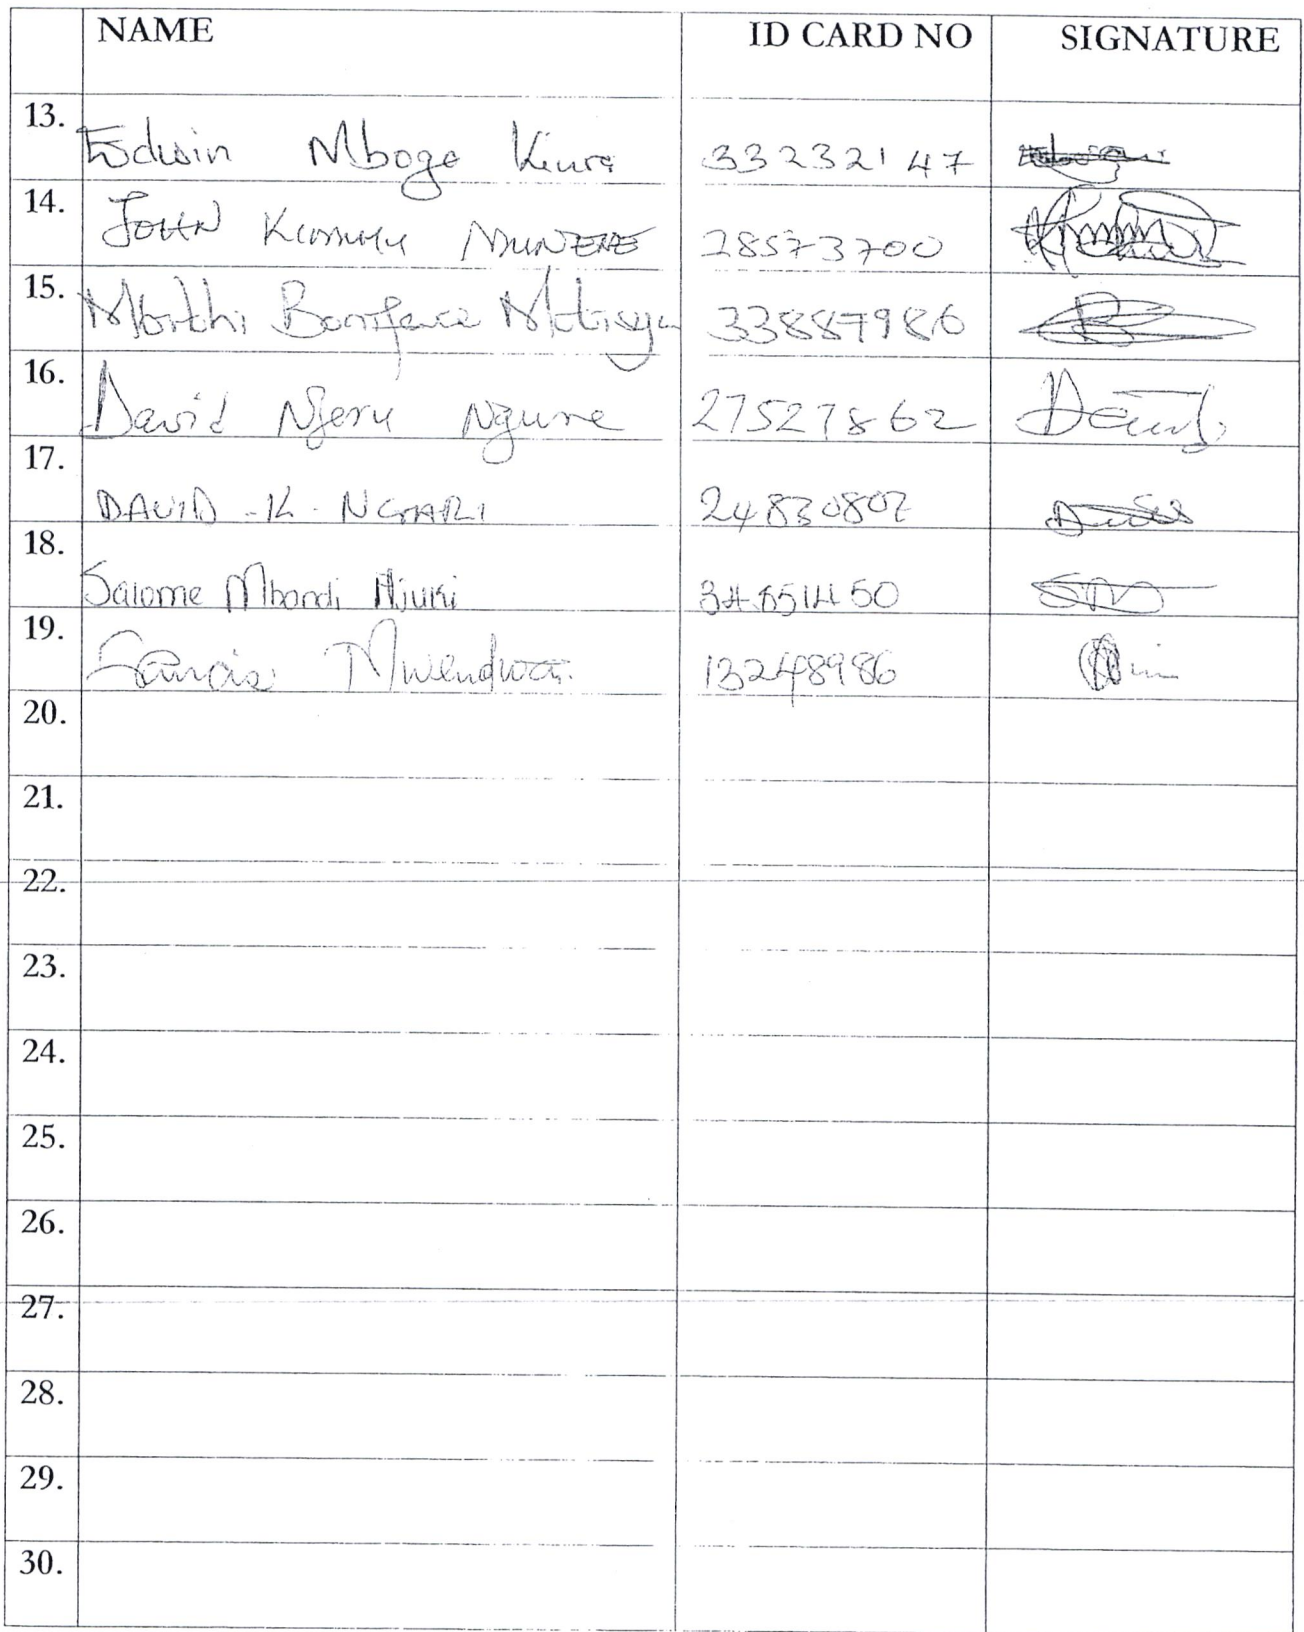 NAME ID CARD NO SIGNATURE
13. Edwin Mbogo Kiura 33232147
14. JOHN MUNENE 28573700
15. Boniface 33887986
16. David Njeru Ngune 27527862
17. DAVID -K- NGARI 24830802
18. Salome Mbandi Njuki
19. Francis Mwendwa 13248986
20.
21.
22.
23.
24.
25.
26.
27.
28.
29.
30.